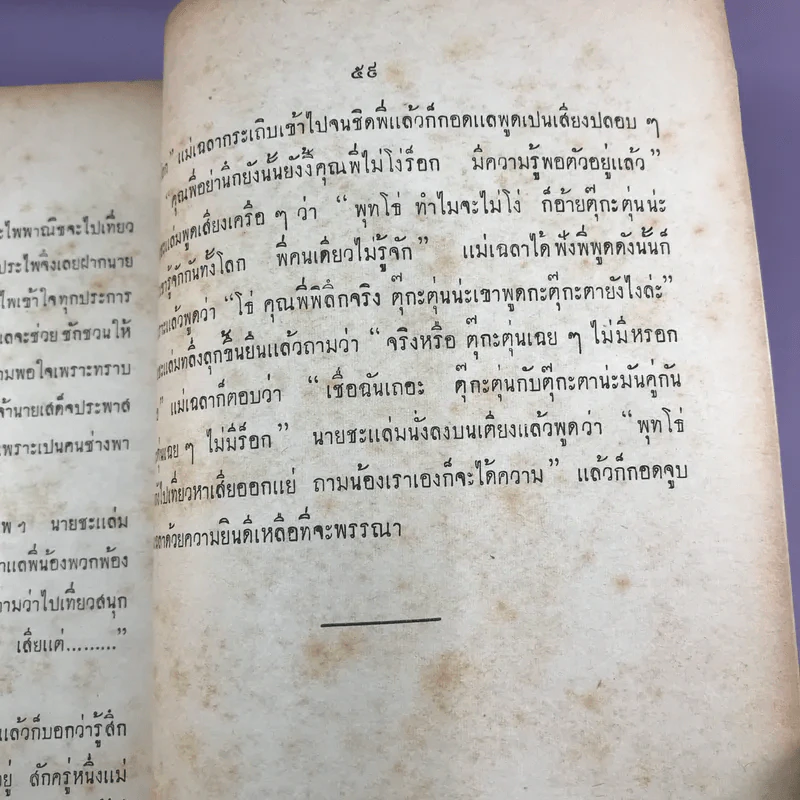 ไพพาณิชจะไปเที่ยว
ประไพจึงเลยฝากนาย
ไพเข้าใจทุกประการ
แลจะช่วย ชักชวนให้
ามพอใจเพราะทราบ
จ้านายเสด็จประพาส
เพราะเปนคนช่างพา
พๆ นายชะแล่ม
าแลพี่น้องพวกพ้อง
ามว่าไปเที่ยวสนุก
เสียแต่.........”
แล้วก็บอกว่ารู้สึก
อยู่ สักครู่หนึ่งแม่
๕๙
” แม่เฉลากระเถิบเข้าไปจนชิดพี่แล้วก็กอดแลพูดเปนเสียงปลอบ ๆ
“คุณพี่อย่านึกยังนั้นยังงี้คุณพี่ไม่โง่ร็อก มีความรู้พอตัวอยู่แล้ว”
แล่มพูดเสียงเครือ ๆ ว่า “ พุทโธ่ ทำไมจะไม่โง่ ก็อ้ายตุ๊กะตุ่นน่ะ
รู้จักกันทั้งโลก พี่คนเดียวไม่รู้จัก” แม่เฉลาได้ ฟังพี่พูดดังนั้นก็
แล้วพูดว่า “โธ่ คุณพี่พิลึกจริง ตุ๊กะตุ่นน่ะเขาพูดกะตุ๊กะตายังไงล่ะ”
แล่มทลึ่งลุกขึ้นยืนแล้วถามว่า “จริงหรือ ตุ๊กะตุ่นเฉย ๆ ไม่มีหรอก
” แม่เฉลาก็ตอบว่า “เชื่อฉันเถอะ ตุ๊กะตุ่นกับตุ๊กะตาน่ะมันคู่กัน
ตุ่นเฉย ๆ ไม่มีร็อก” นายชะแล่มนั่งลงบนเตียงแล้วพูดว่า “พุทโธ่
ไปเที่ยวหาเสียออกแย่ ถามน้องเราเองก็จะได้ความ” แล้วก็กอดจูบ
ลาด้วยความยินดีเหลือที่จะพรรณา